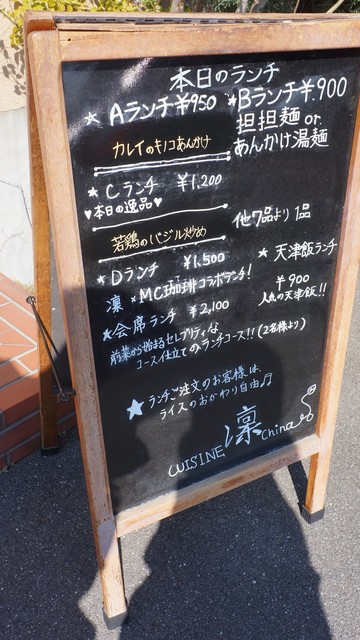 本日のランチ
★Aランチ¥950
カレイのキノコあんかけ
★Bランチ¥.900
担担麺or.
あんかけ湯麺
★Cランチ ¥1,200
♥本日の逸品♥
若鶏のバジル炒め
他7品より1品
★Dランチ ¥1,500
凛×MC珈琲コラボランチ!
★天津飯ランチ
¥900
人気の天津飯!!
★会席ランチ ¥2,100
前菜から始まるセレブリティな
コース仕立てのランチコース!!(2名様より)
★ランチご注文のお客様は、
ライスのおかわり自由♫
CUISINE凛China